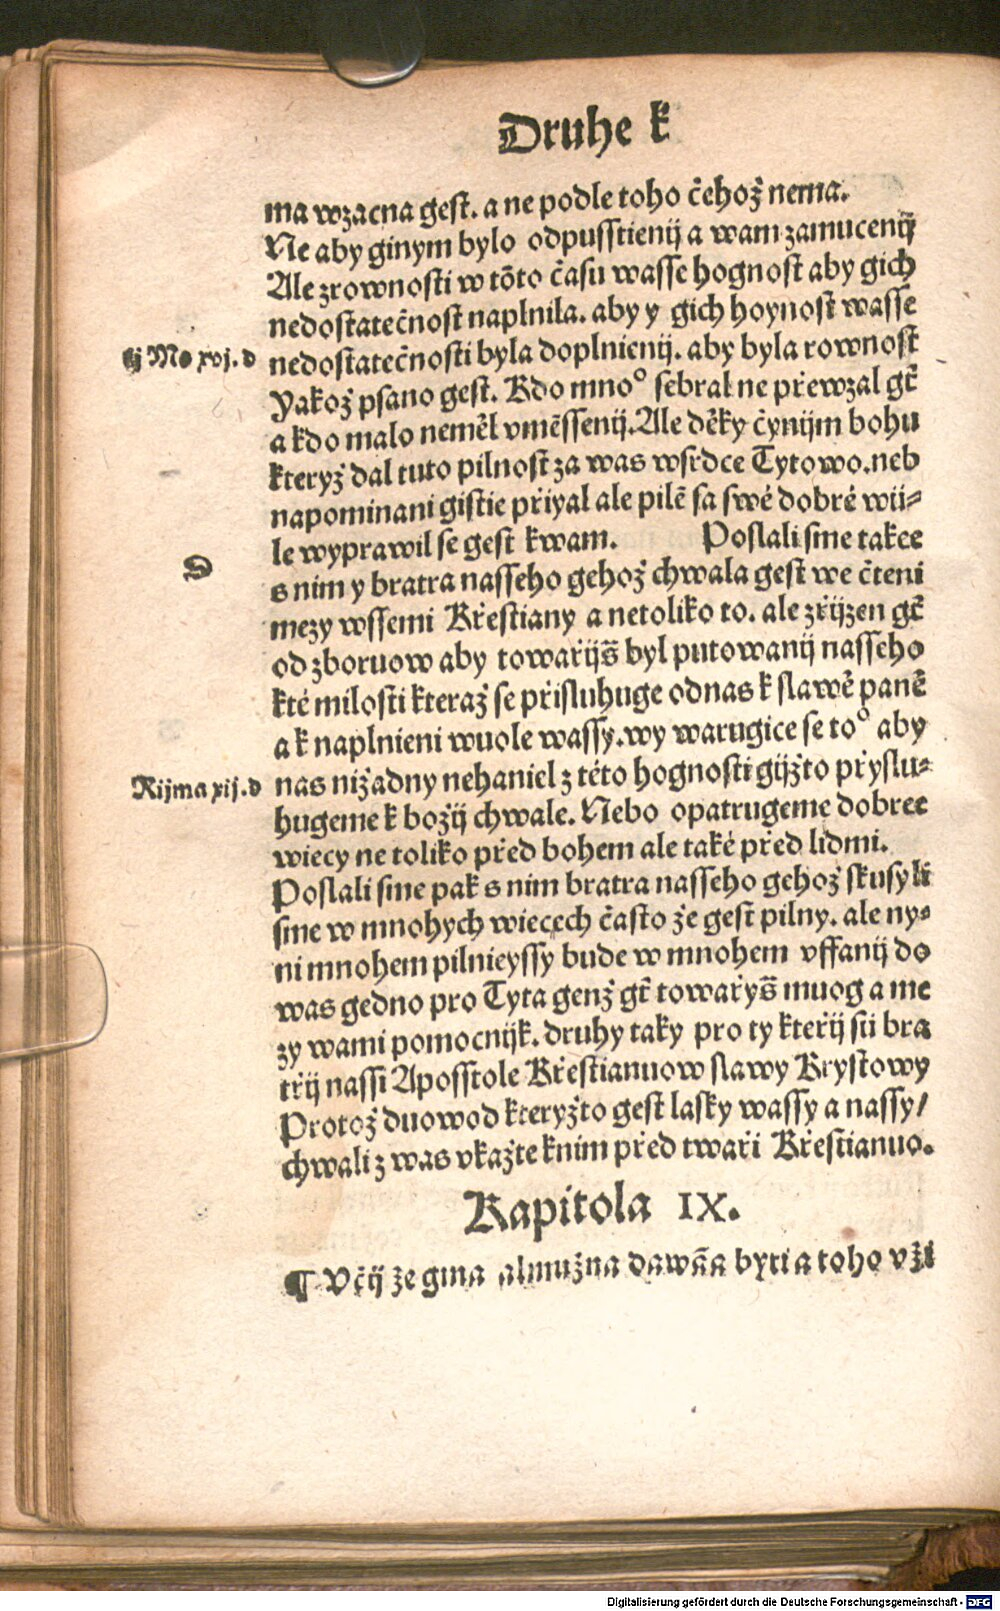 Druhe k̇
ma wzacna gest. a ne podle toho čehož nema.
Ne aby ginym bylo odpusstienij a wam zamucenij
Ale zrownosti w tōto času wasse hognost aby gich
nedostatečnost naplnila. aby y gich hoynost wasse
ij Mo xvj. d
nedostatečnosti byla doplnienij. aby byla rownost
Yakož psano gest. Kdo mnoº sebral ne přewzal gt̄
a kdo malo neměl vměssenij. Ale děky čynijm bohu
kteryž dal tuto pilnost za was wsrdce Tytowo. neb
napominani gistie přiyal ale pilē sa swė dobrė wii⸗
le wyprawil se gest kwam. Poslali sme takee
D
s nim y bratra nasseho gehož chwala gest we čteni
mezy wssemi Křestiany a netoliko to. ale zřijzen gt̄
od zboruow aby towařijs̄ byl putowanij nasseho
ktė milosti kteraž se přisluhuge odnas k slawě paně
a k naplnieni wuole wassy. wy warugice se toº aby
Rijma xij. d
nas nižadny nehaniel z tėto hognosti gijžto přyslu⸗
hugeme k božij chwale. Nebo opatrugeme dobree
wiecy ne toliko před bohem ale takė před lidmi.
Poslali sme pak s nim bratra nasseho gehož skusyli
sme w mnohych wiecech často že gest pilny. ale ny⸗
ni mnohem pilnieyssy bude w mnohem vffanij do
was gedno pro Tyta genž gt̄ towařys̄ muog a me
zy wami pomocnijk. druhy taky pro ty kteřij sii bra
třij nassi Aposstole Křestianuow slawy Krystowy
Protož duowod kteryžto gest lasky wassy a nassy/
chwali z was vkažte knim před twaři Křestianuo.
Kapitola IX.
¶ Včij že gina almužna dawāna byti a toho vži
Digitalisierung gefördert durch die Deutsche Forschungsgemeinschaft - DFG